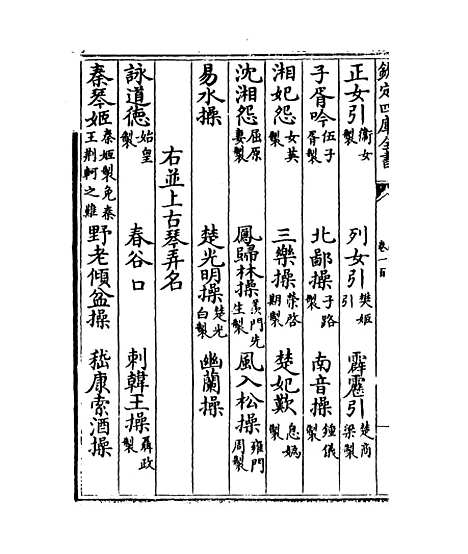 欽定四庫全書
卷一百
正女引衞女製 列女引樊姬引 霹靂引楚商梁製
子胥吟伍子胥製 北鄙操子路製 南音操鍾儀製
湘妃怨女英製 三樂操榮啓期製 楚妃歎息媯製
沈湘怨屈原妻製 鳳歸林操羨門先生製 風入松操雍門周製
易水操 楚光明操楚光白製 幽蘭操
右並上古琴弄名
詠道德始皇製 春谷口 刺韓王操聶政製
秦琴姬秦姬製免秦王荆軻之難 野老傾盆操 嵇康索酒操